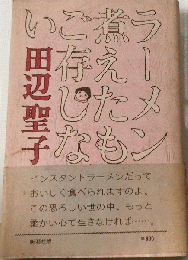 ラーメン
煮えたも
ご存じな
い
田辺聖子
インスタントラーメンだって
おいしく食べられますのよ、
この恐ろしい世の中、もっと
豊かい心で生きなければ……。
新潮社版